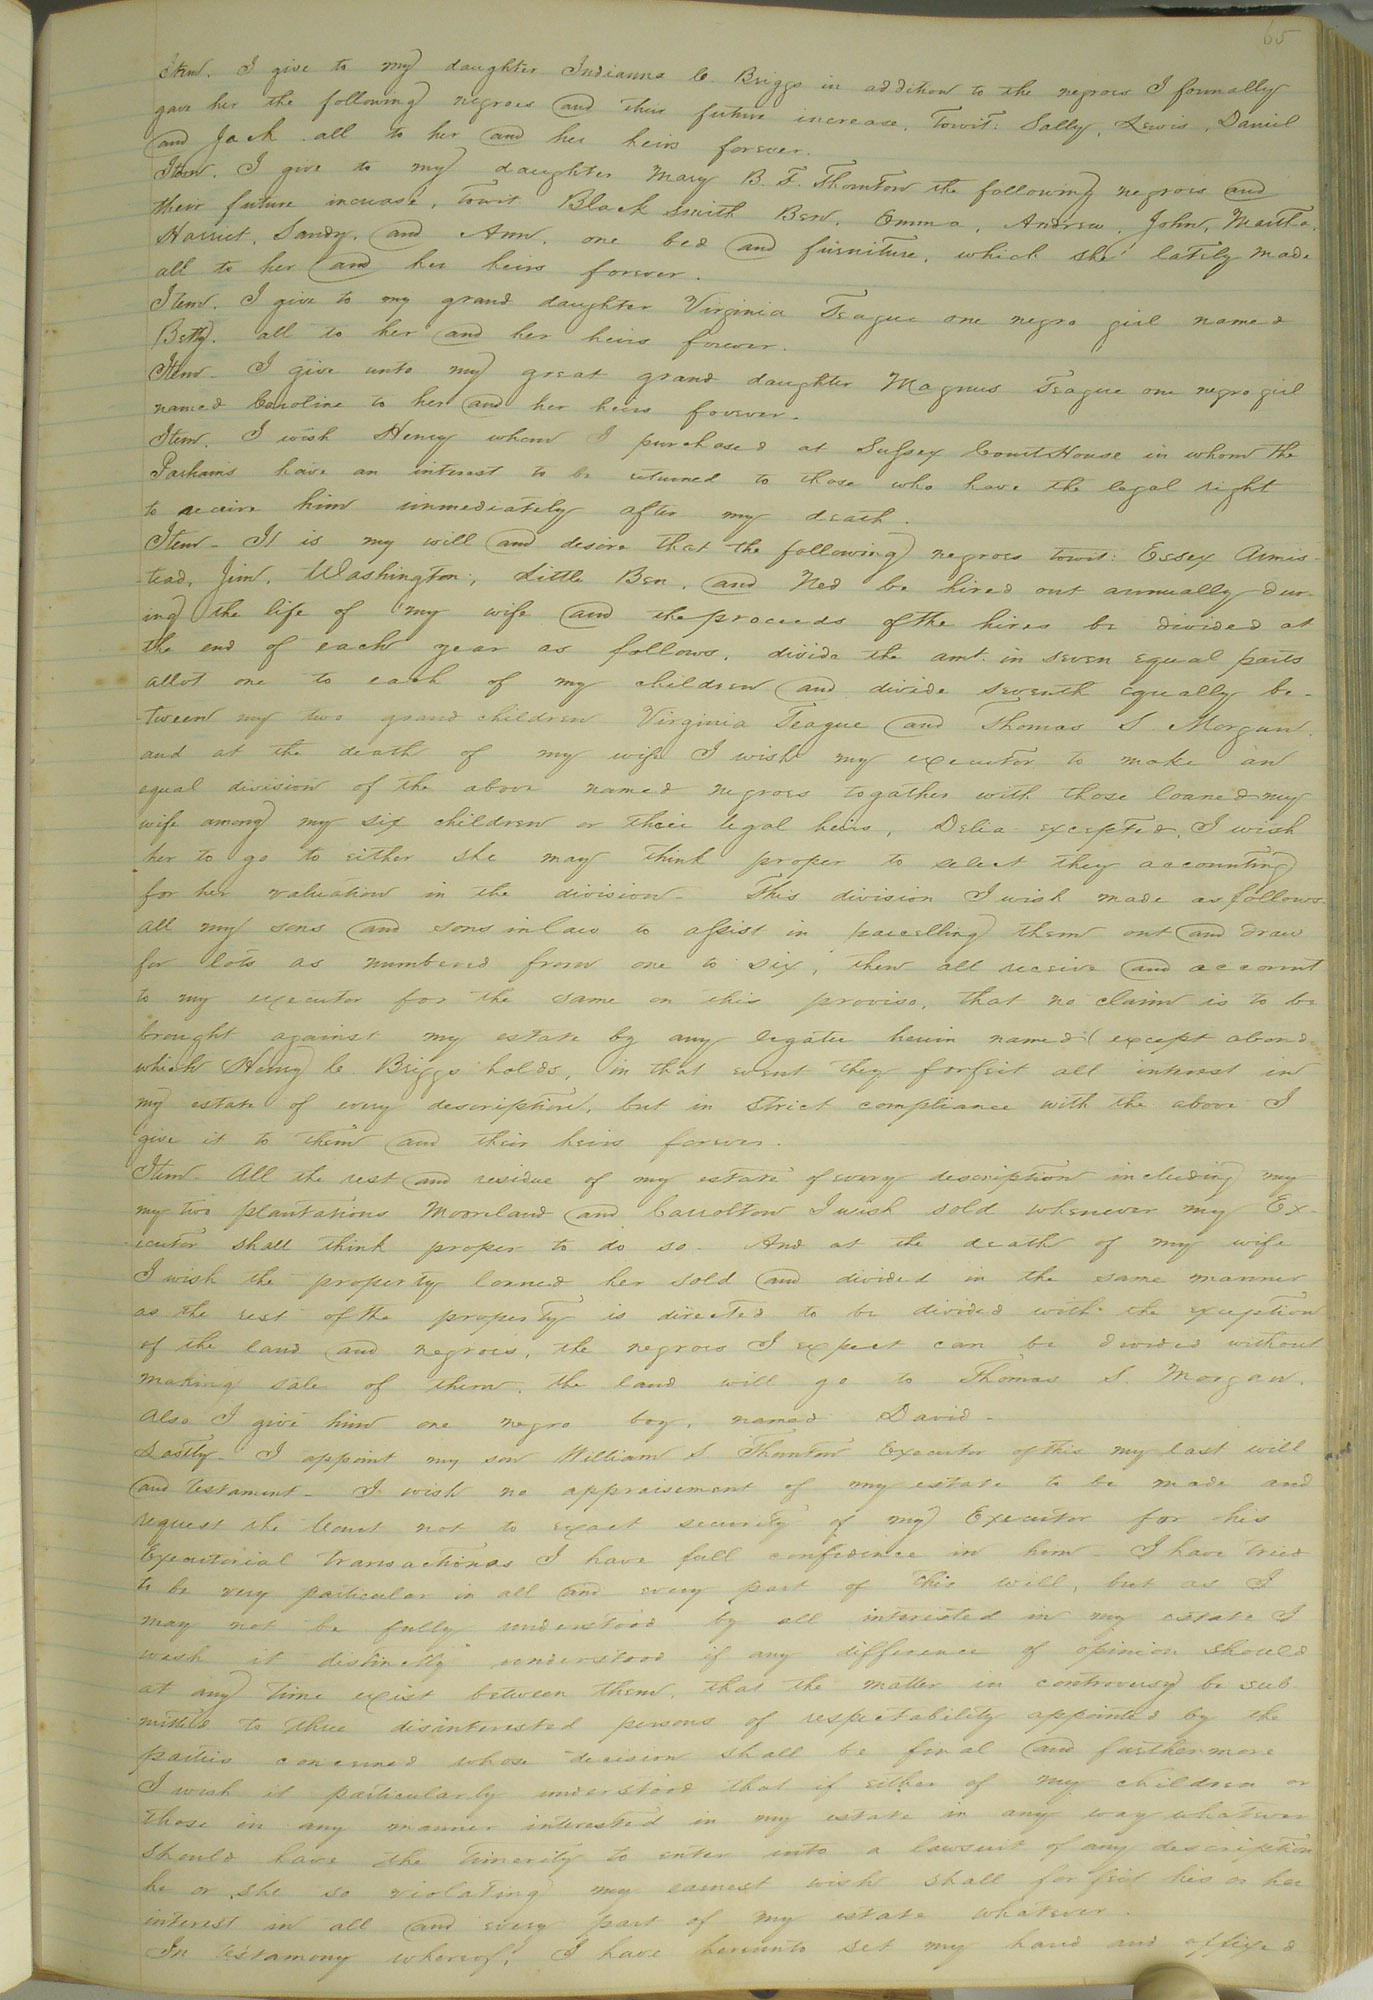 65
Item. I give to my daughter Indianna C. Briggs in addition to the negroes I formally
gave her the following negroes and their future increase, Towit: Sally, Lewis, Daniel
and Jack all to her and her heirs forever.
Item. I give to my daughter Mary B. F. Thornton the following negroes and
their future increase, Towit Black smith Ben, Emma, Andrew, John, Martha,
Harriet, Sandy, and Ann, one bed and furniture, which she lately made
all to her and her heirs forever.
Item. I give to my grand daughter Virginia Teague one negro girl named
Betty. all to her and her heirs forever.
Item - I give unto my great grand daughter Magnus Teague one negro girl
named Caroline to her and her heirs forever.
Item. I wish Henry whom I purchased at Sussex CourtHouse in whom the
Parhams have an interest to be returned to those who have the legal right
to receive him immediately after my death.
Item - It is my will and desire that the following negroes towit: Essex Armis-
tead, Jim, Washington, Little Ben, and Ned be hired out annually dur-
ing the life of my wife and the proceeds of the hires be divided at
the end of each year as follows, divide the amt. in seven equal parts
allot one to each of my children and divide seventh equally be-
tween my two grand children Virginia Teague and Thomas S. Morgan.
and at the death of my wife I wish my executor to make an
equal division of the above named negroes togather with those loaned my
wife among my six children or their legal heirs, Delia excepted, I wish
her to go to either she may think proper to select they accounting
for her valuation in the division - This division I wish made as follows
all my sons and sons in law to assist in parcelling them out and draw
for lots as numbered from one to six, then all receive and account
to my executor for the same on this proviso, that no claim is to be
brought against my estate by any legatee herein named (except a bond
which Henry C. Briggs holds, in that event they forfeit all interest in
my estate of every description, but in strict compliance with the above I
give it to them and their heirs forever.
Item - All the rest and residue of my estate of every description including my
my two plantations Mooreland and Carrolton I wish sold whenever my Ex-
ecutor shall think proper to do so. And at the death of my wife
I wish the property loaned her sold and divided in the same manner
as the rest of the property is directed to be divided with the exception
of the land and negroes, the negroes I expect can be divided without
making sale of them, the land will go to Thomas S. Morgan.
Also I give him one negro boy, named David -
Lastly - I appoint my son William S Thornton Executor of this my last will
and testament - I wish no appraisement of my estate to be made and
request the Court not to exact security of my Executor for his
Executorial transactions I have full confidence in him - I have tried
to be very particular in all and every part of this will, but as I
may not be fully understood by all interested in my estate I
wish it distinctly understood if any difference of opinion should
at any time exist between them, that the matter in controversy be sub
mitted to three disinterested persons of respectability appointed by the
parties concerned whose decision shall be final and furthermore
I wish it particularly understood that if either of my children or
those in any manner interested in my estate in any way whatever
should have the timerity to enter into a lawsuit of any description
he or she so violating my earnest wish shall forfeit his or her
interest in all and every part of my estate whatever.
In testamony whereof, I have hereunto set my hand and affixed